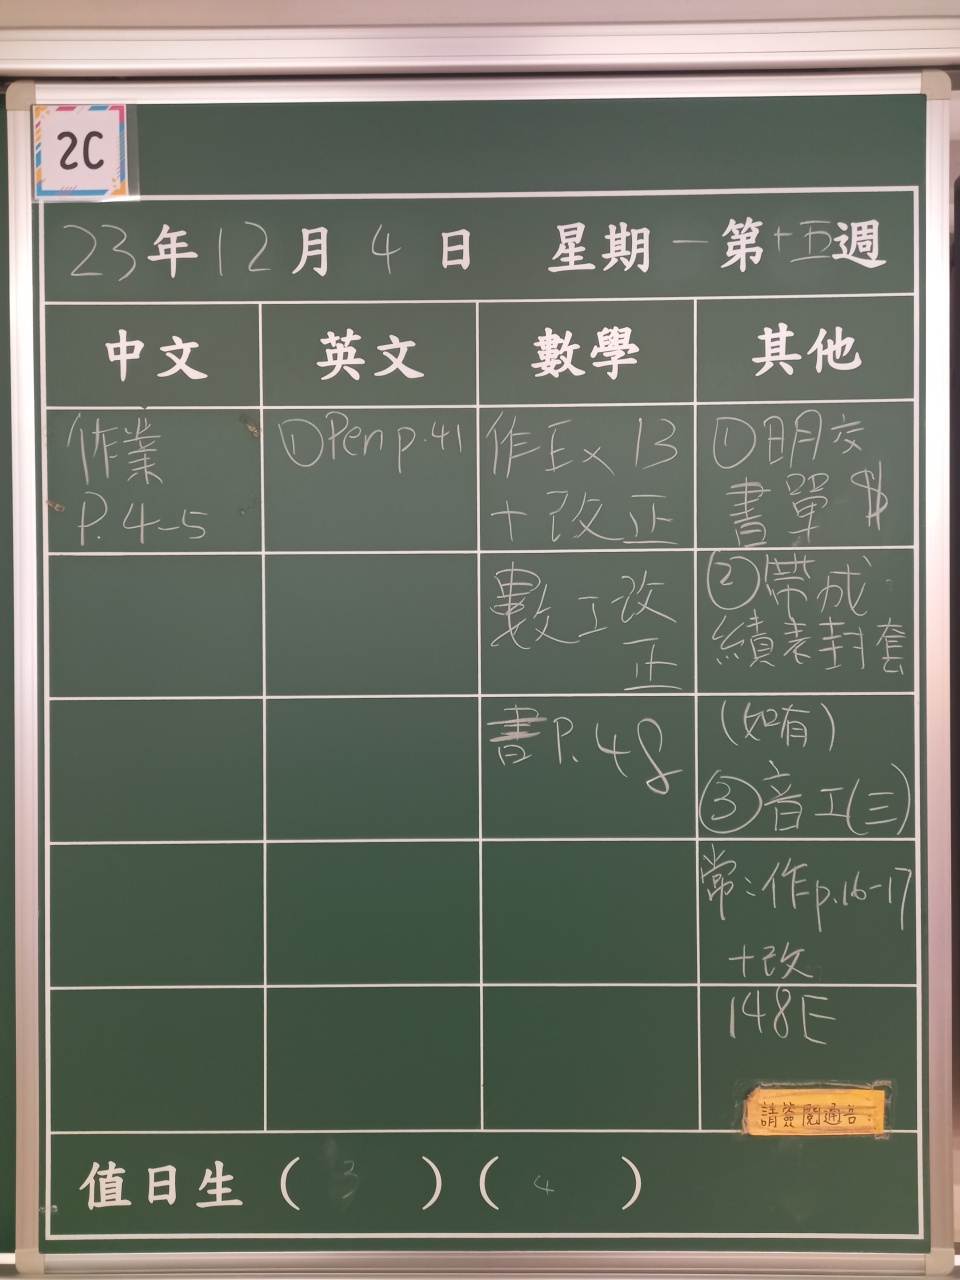 2C
23年12月4日 星期一第十五週
中文 英文 數學 其他
作業
P.4-5
①Pen p.41
作Ex 13
+改正
數工改
正
書P.48
①明交
書單$
②帶成
績表封套
(如有)
③音工(三)
常:作p.16-17
+改
148E
請簽閱通告:
值日生(3)(4)